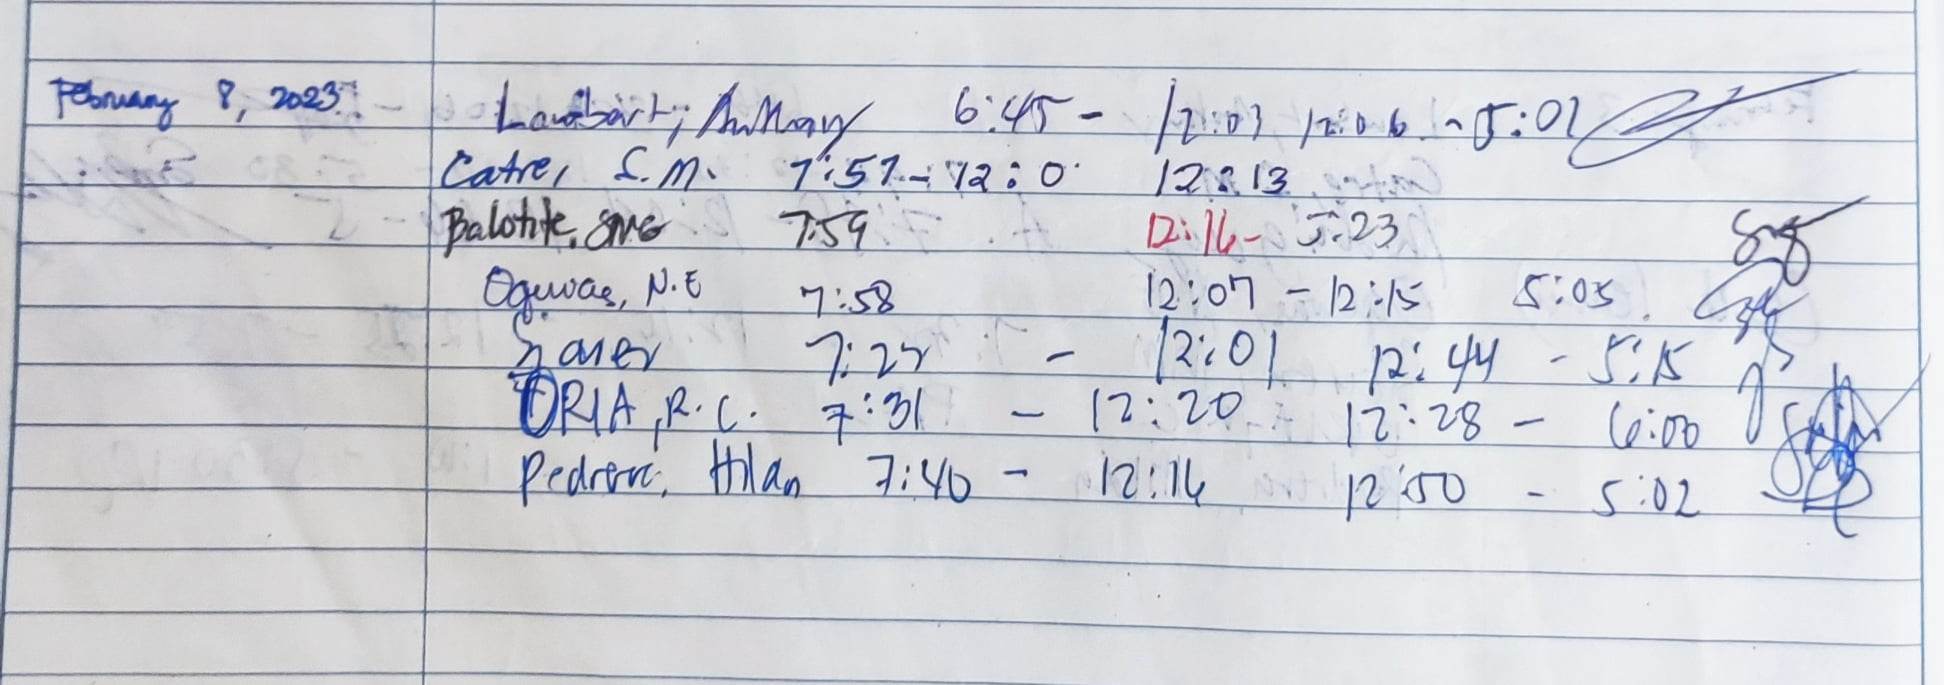 February 8, 2023
Lambart, Anthony 6:45 - 12:03 12:06 - 5:01
Catre, S.M. 7:57 - 12:0 12:13
Balotite, 7:59 12:16 - 5:23
Oguwas, N.E 7:58 12:07 - 12:15 5:05
7:27 - 12:01 12:44 - 5:15
ORIA, R.C. 7:31 - 12:20 12:28 - 6:00
Hilan 7:40 - 12:16 12:50 - 5:02